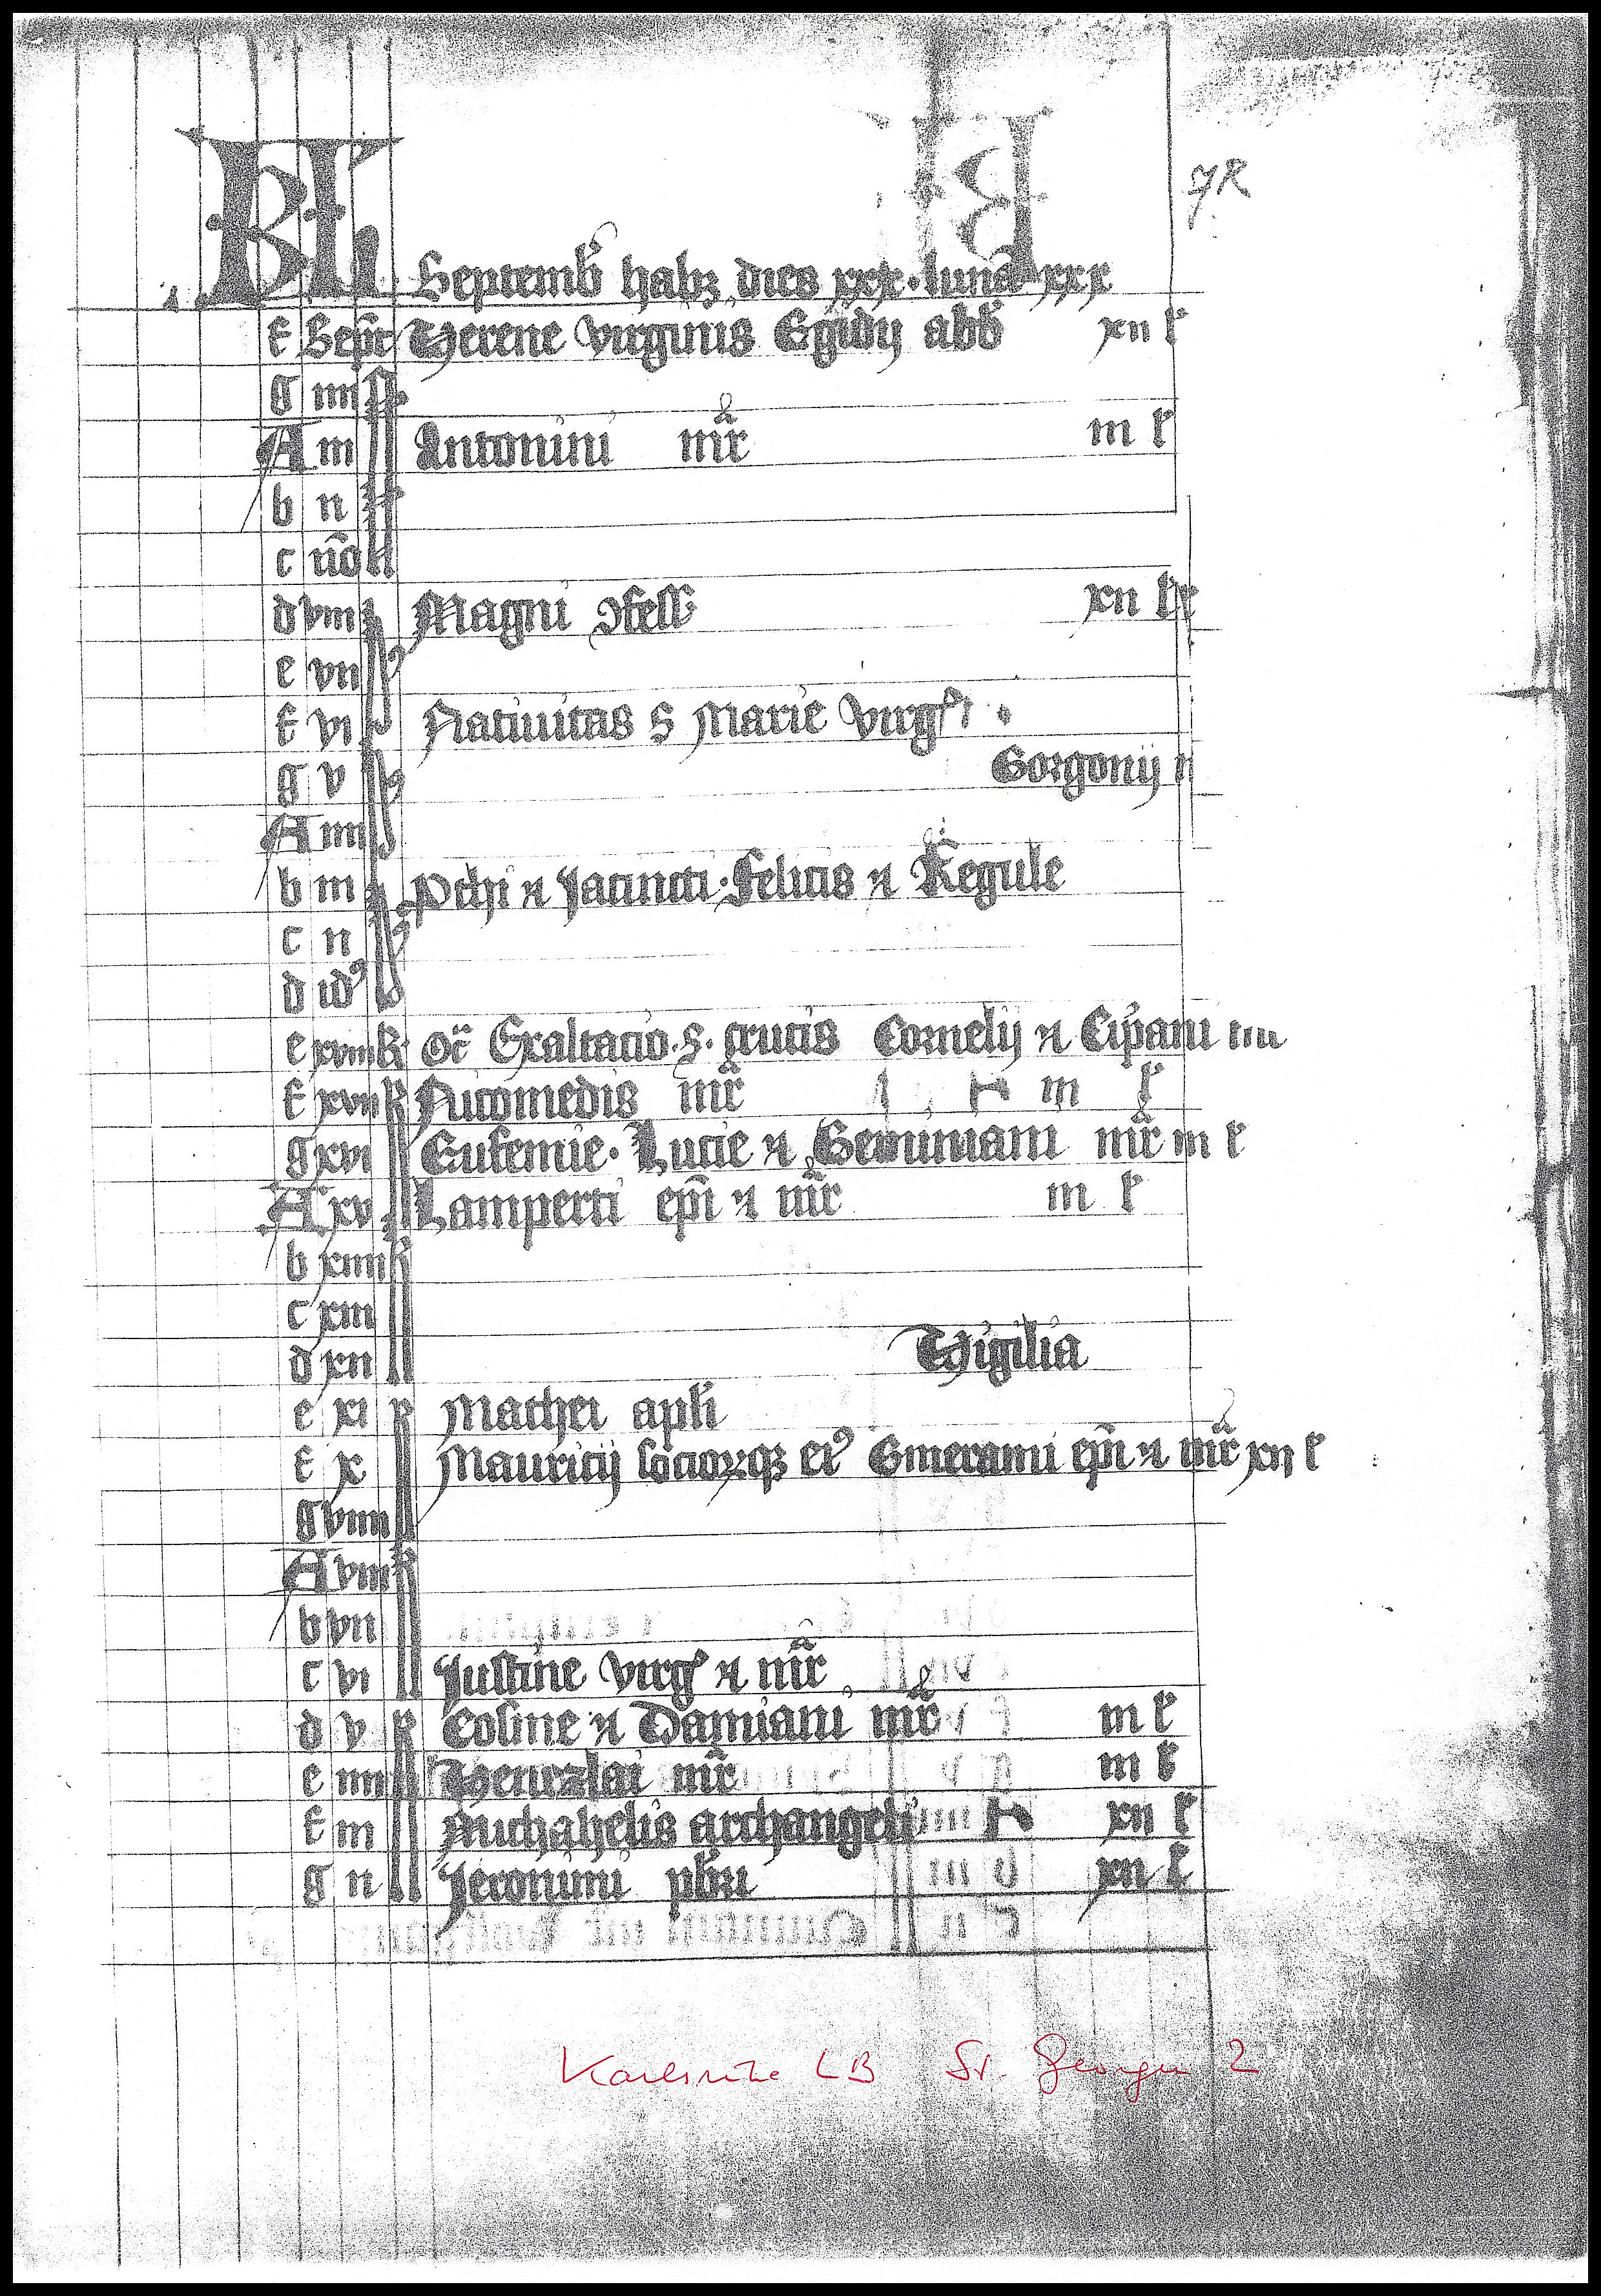 7R
KL Septemb habꝫ dies xxx · luna xxx
f Sept Verene virginis Egidij abb xii l
g iiii
A iii Antonini mr iii l
b ii
c no
d viii Magni ꝯfess xii l
e vii
f vi Natiuitas s Marie virg
g v Gorgonij
A iiii
b iii Pthi ⁊ Jacincti · felicis ⁊ Regule
c ii
d idꝰ
e xviii kl Exaltacio · s · crucis Cornelij ⁊ Cipani iiii
f xvii k Nicomedis mr iii l
g xvi Eufemie · Lucie ⁊ Geminiani mr iii l
A xv Lamperti epi ⁊ mr iii l
b xiiii k
c xiii
d xii Vigilia
e xi k Mathei apli
f x Mauricij socioꝝqꝫ eiꝰ Emerami epi ⁊ mr xii l
g viiii
A viii k
b vii
c vi Justine virg ⁊ mr
d v k Cosme ⁊ Damiani mr iii l
e iiii Wenezlai mr iii l
f iii Michahelis archangeli xii l
g ii Jeronimi pbri xii l
Karlsruhe LB St. Georgen 2